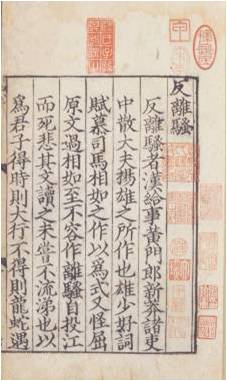 反離騷
反離騷者漢給事黃門郎新莽諸吏
中散大夫揚雄之所作也雄少好詞
賦慕司馬相如之作以爲式又怪屈
原文過相如至不容作離騷自投江
而死悲其文讀之未嘗不流涕也以
爲君子得時則大行不得則龍蛇遇